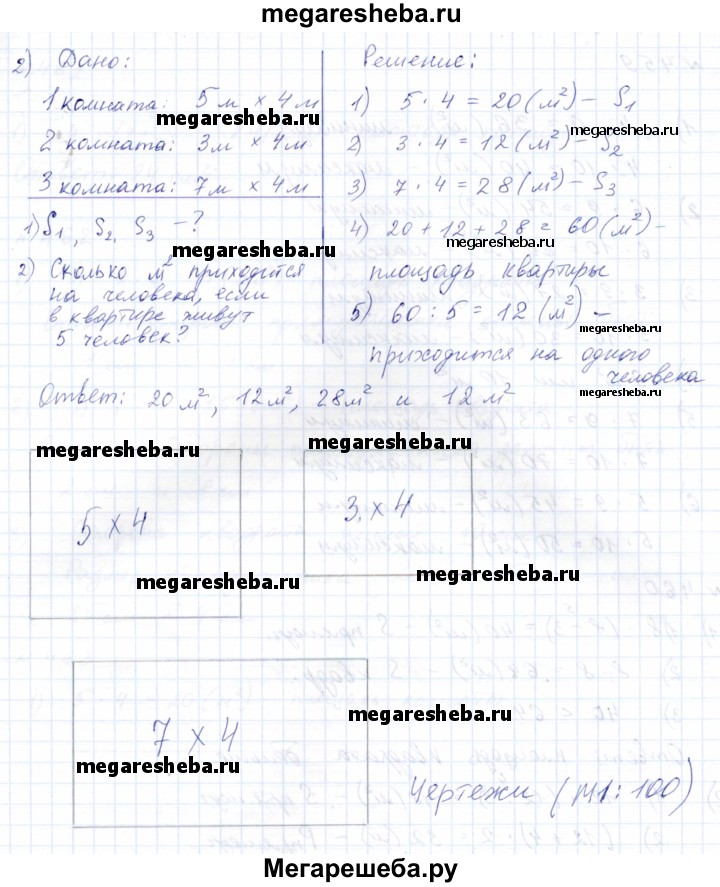 megaresheba.ru
2) Дано:
1 комната: 5 м × 4 м
megaresheba.ru
2 комната: 3 м × 4 м
3 комната: 7 м × 4 м
1) S₁, S₂, S₃ – ?
megaresheba.ru
2) Сколько м² приходится
на человека, если
в квартире живут
5 человек?
Решение:
1) 5 · 4 = 20 (м²) – S₁
megaresheba.ru
2) 3 · 4 = 12 (м²) – S₂
3) 7 · 4 = 28 (м²) – S₃
4) 20 + 12 + 28 = 60 (м²) –
megaresheba.ru
площадь квартиры
5) 60 : 5 = 12 (м²) –
приходится на одного
человека
megaresheba.ru
Ответ: 20 м², 12 м², 28 м² и 12 м²
megaresheba.ru
megaresheba.ru
5 × 4
3 × 4
megaresheba.ru
megaresheba.ru
7 × 4
megaresheba.ru
megaresheba.ru
Чертежи (М1:100)
Мегарешеба.ру